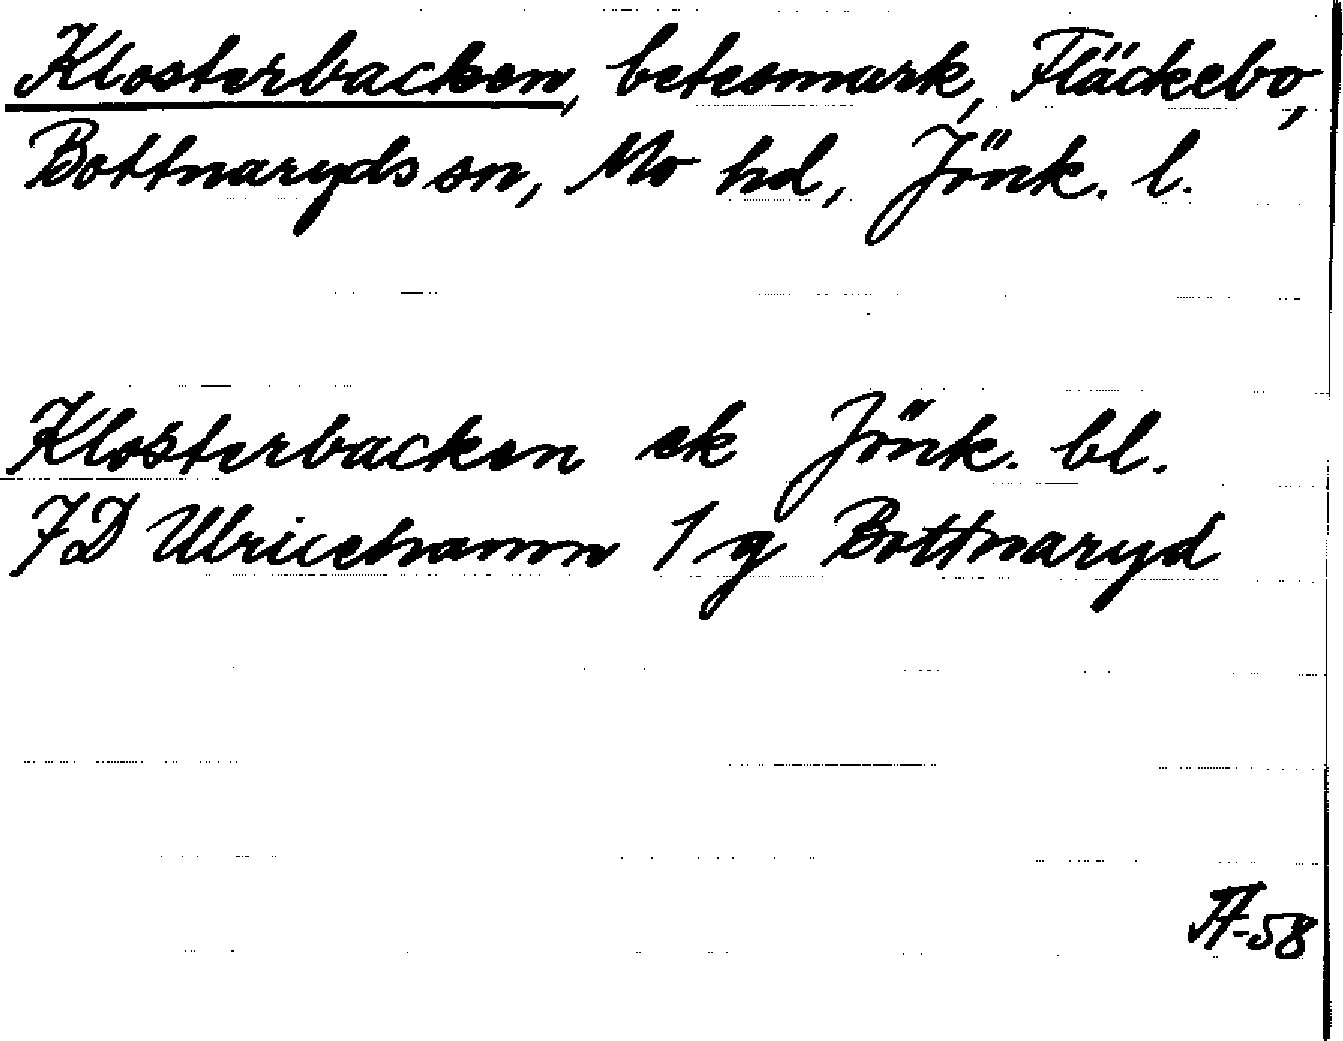 Klosterbacken, betesmark, Fläckebo,
Bottnaryds sn, Mo hd, Jönk. l.
Klosterbacken ek Jönk. bl.
7D Ulricehamn 1 g Bottnaryd
-58